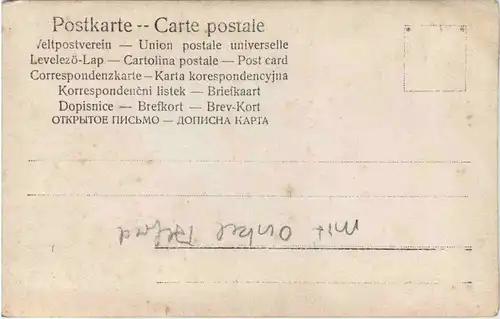 Postkarte -- Carte postale
Weltpostverein — Union postale universelle
Levelező-Lap — Cartolina postale — Post card
Correspondenzkarte — Karta korespondencyjna
Korrespondenční listek — Briefkaart
Dopisnice — Brefkort — Brev-Kort
ОТКРЫТОЕ ПИСЬМО — ДОПИСНА КАРТА
mit Onkel